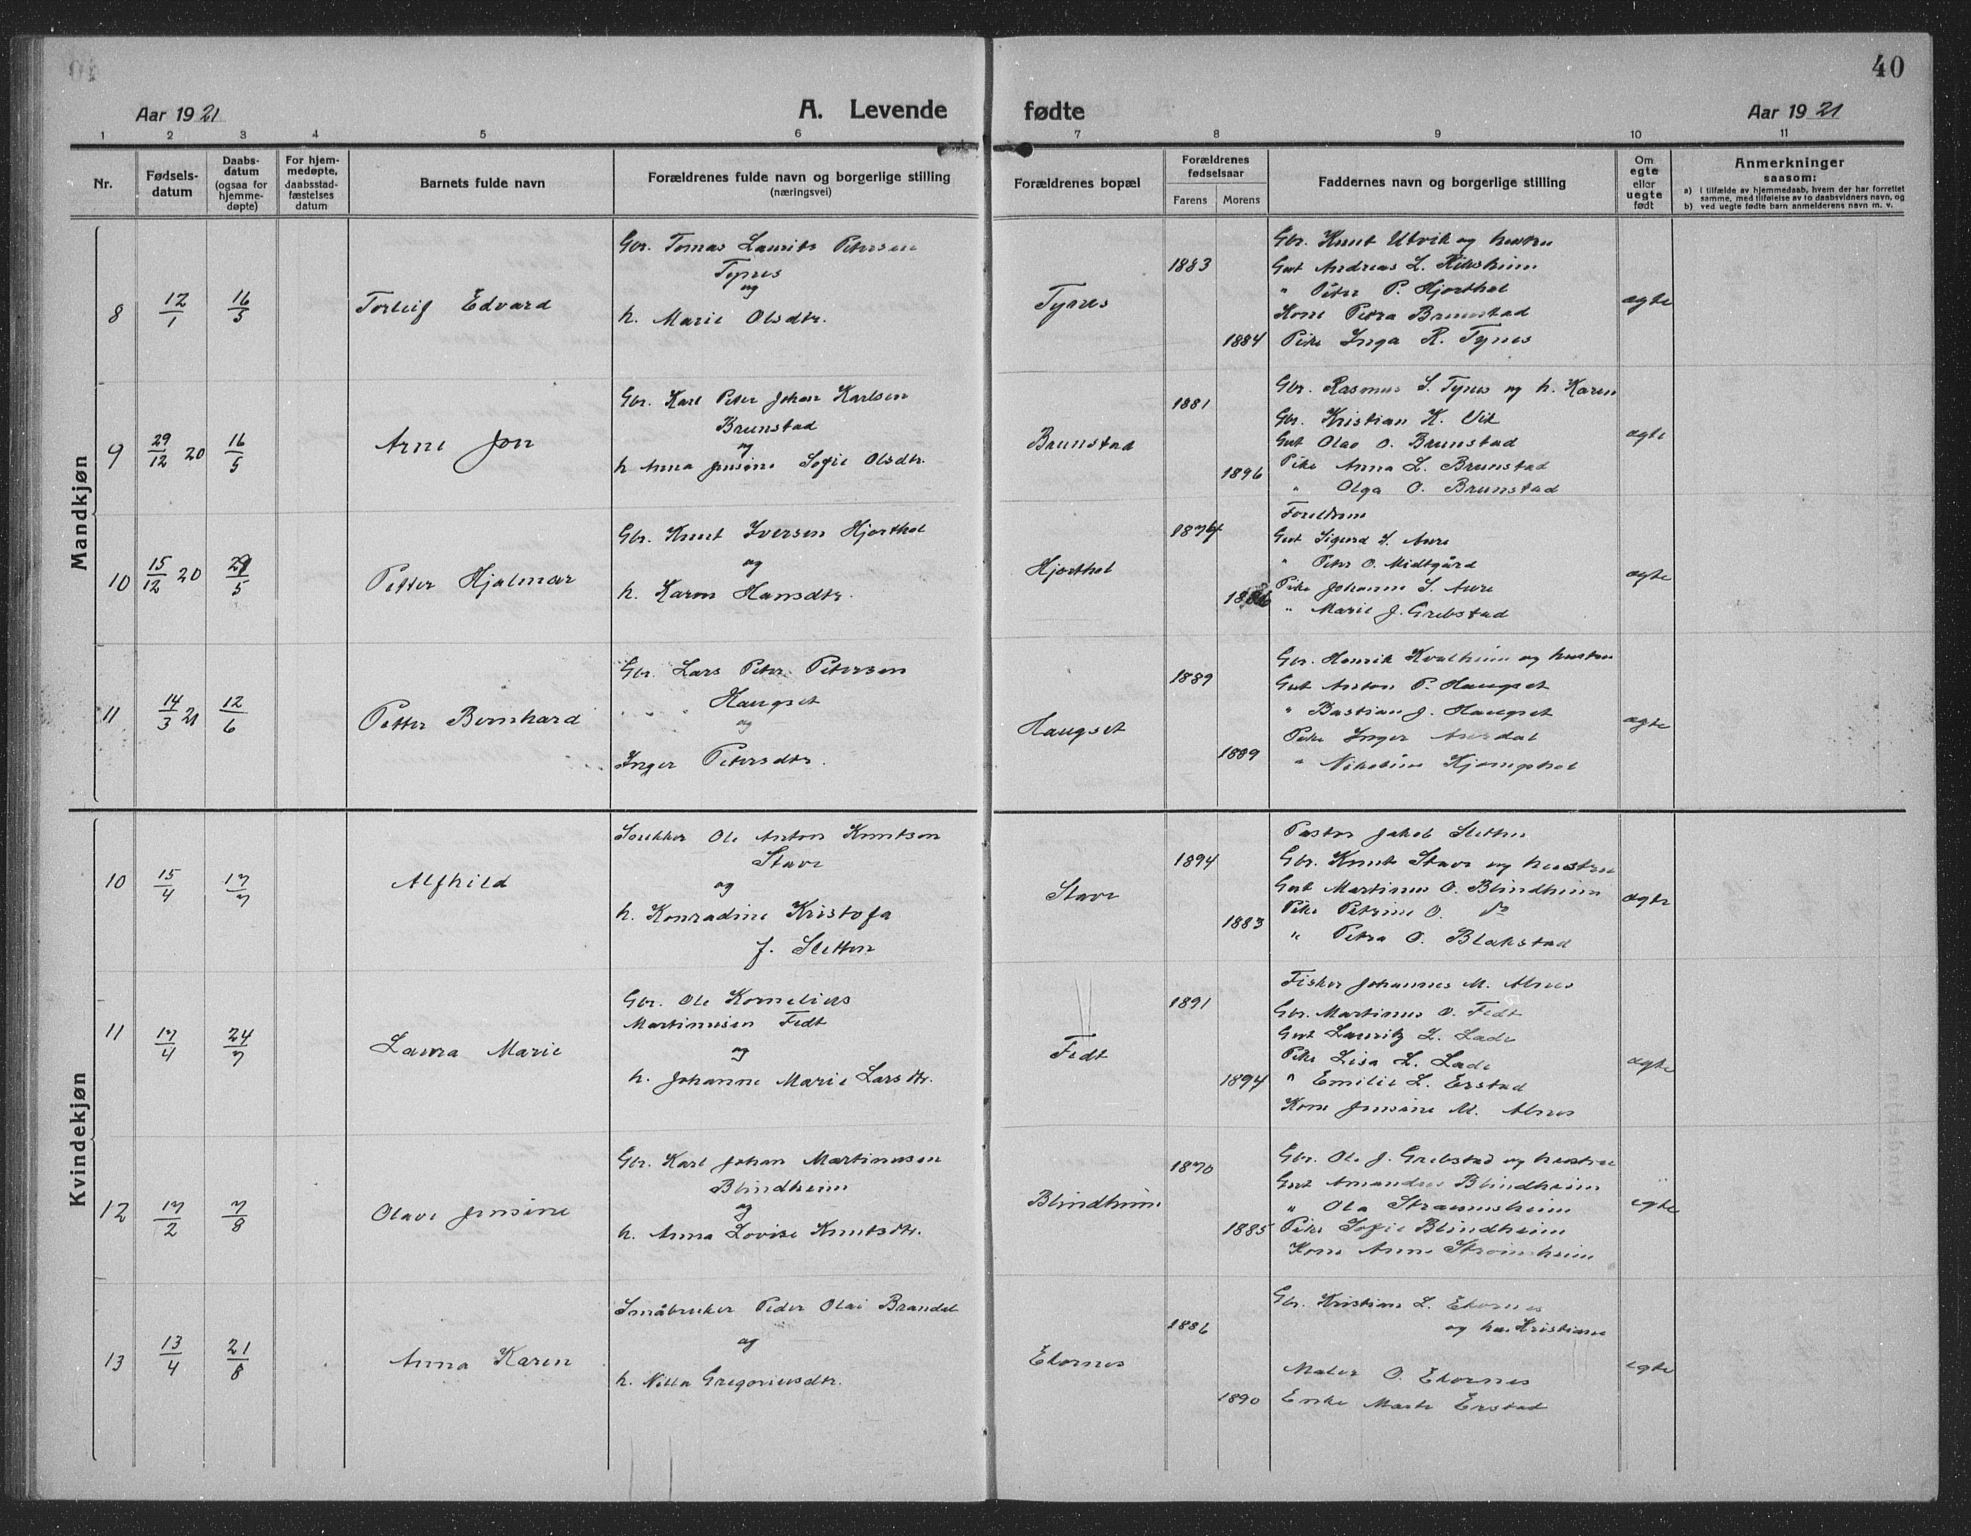 40
Aar 1921 A. Levende fødte Aar 1921
1 2 3 4 5 6 7 8 9 10 11
Nr.
Fødsels-
datum
Daabs-
datum
(ogsaa for
hjemme-
døpte)
For hjem-
medøpte,
daabsstad-
fæstelses
datum
Barnets fulde navn
Forældrenes fulde navn og borgerlige stilling
(næringsvei)
Forældrenes bopæl
Forældrenes
fødselsaar
Farens Morens
Faddernes navn og borgerlige stilling
Om
egte
eller
uegte
født
Anmerkninger
saasom:
a) i tilfælde av hjemmedaab, hvem der har forrettet
samme, med tilføielse av to daabsvidners navn, og
b) ved uegte fødte barn anmelderens navn m. v.
Mandkjøn
8
12/1
16/5
Torleif Edvard
Gbr. Tomas Laurits Petersen
Tynes
og
h. Marie Olsdtr.
Tynes
1883
1884
Gbr. Knut Utvik og hustru
Gut Andreas L. Riksheim
" Peter P. Hjorthol
Kone Petra Brunstad
Pike Inga R. Tynes
ægte
9
29/12 20
16/5
Arne Jon
Gbr. Karl Peter Johan Karlsen
Brunstad
og
h Anna Jensine Sofie Olsdtr.
Brunstad
1881
1896
Gbr. Rasmus S. Tynes og h. Karen
Gbr. Kristian K. Vik
Gut Olav O. Brunstad
Pike Anna L. Brunstad
" Olga O. Brunstad
ægte
10
15/12 20
29/5
Petter Hjalmar
Gbr. Knut Iversen Hjorthol
og
h. Karen Hansdtr.
Hjorthol
Foreldrene
Gut Sigurd S. Aure
" Peter O. Midtgård
Pike Johanne S. Aure
" Marie J. Grebstad
ægte
11
14/3 21
12/6
Petter Bernhard
Gbr. Lars Peter Petersen
Haugset
og
Inger Petersdtr.
Haugset
1889
1889
Gbr. Henrik Kvalheim og hustru
Gut Anton P. Haugset
" Bastian J. Haugset
Pike Inger Aursdal
" Nikoline
ægte
Kvindekjøn
10
15/4
17/7
Alfhild
Snekker Ole Anton Knutsen
Stave
og
h. Konradine Kristofa
J. Sletten
Stave
1894
1883
Pastor Jakob Sletten
Gbr. Knut Stave og hustru
Gut Martinus O. Blindheim
Pike Petrine O. do
" Petra O. Blakstad
ægte
11
17/4
24/7
Laura Marie
Gbr. Ole Kornelius
Martinusen Fedt
og
h. Johanne Marie Larsdtr.
Fedt
1891
1894
Fisker Johannes M. Alnes
Gbr. Martinus O. Fedt
Gut Lauritz L. Lade
Pike Lisa L. Lade
" Emilie L. Erstad
Kone Jensine M. Alnes
ægte
12
17/2
7/8
Olave Jensine
Gbr. Karl Johan Martinusen
Blindheim
og
h. Anna Lovise Knutsdtr.
Blindheim
1870
1885
Gbr. Ole J. Grebstad og hustru
Gut Amandus Blindheim
" Ola Straumsheim
Pike Sofie Blindheim
Kone Anne Strømsheim
egte
13
13/4
21/8
Anna Karen
Småbruker Peder Olai Brandal
og
h. Nilla Gregoriusdtr.
Ekornes
1886
1890
Gbr. Kristian L. Ekornes
og hu. Kristiane
Maler O. Ekornes
Enke Marte Erstad
egte